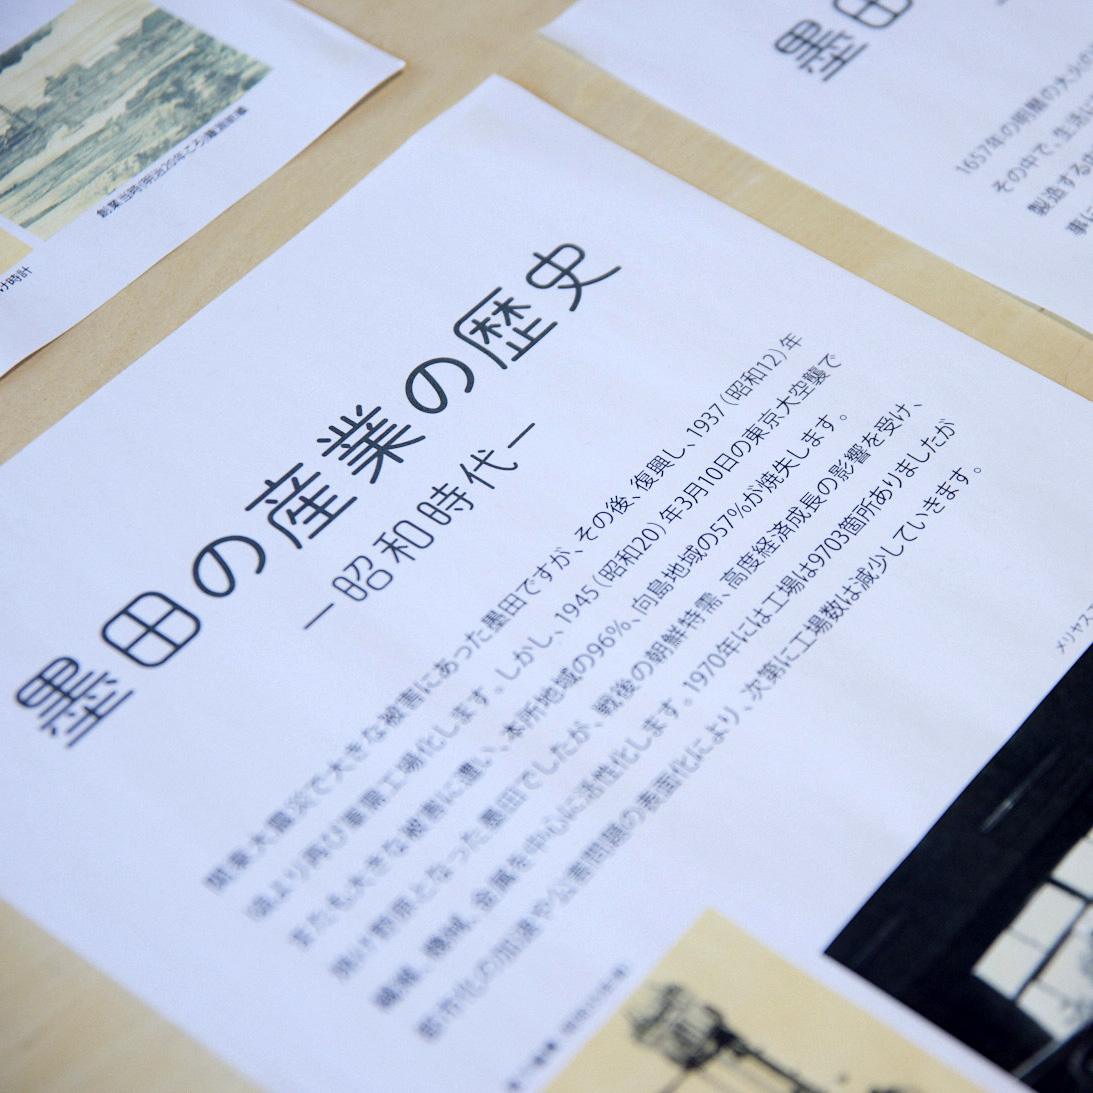 創業当時(明治20年ごろ)精工舎
け時計
墨田
1657年の明暦の大火の
その中で、生活
製造する
事に
墨田の産業の歴史
―昭和時代―
関東大震災で大きな被害にあった墨田ですが、その後、復興し、1937（昭和12）年
頃より再び軍需工場化します。しかし、1945（昭和20）年3月10日の東京大空襲で
またも大きな被害に遭い、本所地域の96%、向島地域の57%が焼失します。
焼け野原となった墨田でしたが、戦後の朝鮮特需、高度経済成長の影響を受け、
繊維、機械、金属を中心に活性化します。1970年には工場は9703箇所ありましたが
都市化の加速や公害問題の表面化により、次第に工場数は減少していきます。
メリヤス